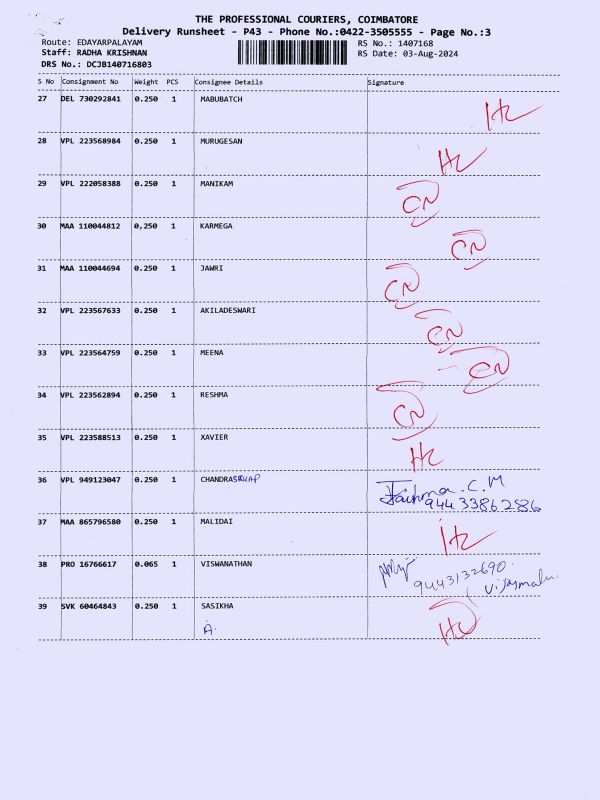 THE PROFESSIONAL COURIERS, COIMBATORE
Delivery Runsheet - P43 - Phone No.:0422-3505555 - Page No.:3
Route: EDAYARPALAYAM RS No.: 1407168
Staff: RADHA KRISHNAN RS Date: 03-Aug-2024
DRS No.: DCJB140716803
S No Consignment No Weight PCS Consignee Details Signature
27 DEL 730292841 0.250 1 MABUBATCH HL
28 VPL 223568984 0.250 1 MURUGESAN HL
29 VPL 222058388 0.250 1 MANIKAM CN
30 MAA 110044812 0,250 1 KARMEGA CN
31 MAA 110044694 0.250 1 JAWRI CN
32 VPL 223567633 0.250 1 AKILADESWARI CN
33 VPL 223564759 0.250 1 MEENA CN
34 VPL 223562894 0.250 1 RESHMA CN
35 VPL 223588513 0.250 1 XAVIER HL
36 VPL 949123047 0.250 1 CHANDRA C.M
9443386286
37 MAA 865796580 0.250 1 MALIDAI HL
38 PRO 16766617 0.065 1 VISWANATHAN
9443132690.
39 SVK 60464843 0.250 1 SASIKHA HL
A.